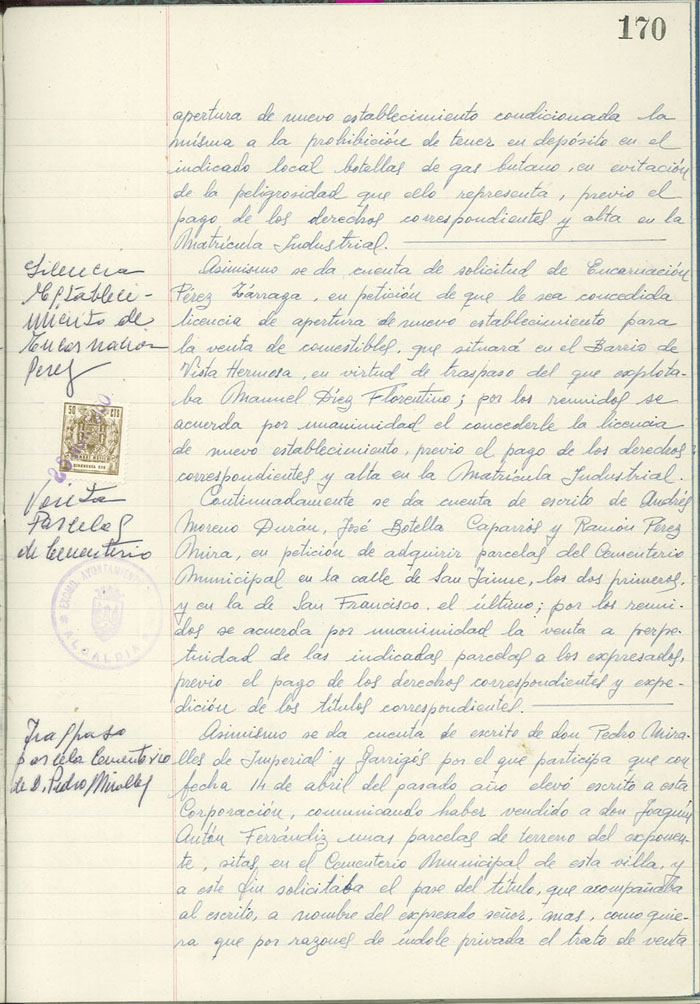 170
apertura de nuevo establecimiento condicionada la
misma a la prohibición de tener en depósito en el
indicado local botellas de gas butano, en evitación
de la peligrosidad que ello representa, previo el
pago de los derechos correspondientes y alta en la
Matrícula Industrial.
Licencia
Estableci-
miento de
Encarnación
Perez
Asimismo se da cuenta de solicitud de Encarnación
Pérez Zárraga, en petición de que le sea concedida
licencia de apertura de nuevo establecimiento para
la venta de comestibles, que situará en el Barrio de
Vista Hermosa, en virtud de traspaso del que explota-
ba Manuel Díez Florentino; por los reunidos se
acuerda por unanimidad el concederle la licencia
de nuevo establecimiento, previo el pago de los derechos
correspondientes y alta en la Matrícula Industrial.
50 CTS
Venta
Parcelas
de Cementerio
EXCMO. AYUNTAMIENTO
ALCALDIA
Continuadamente se da cuenta de escrito de Andrés
Moreno Durán, José Botella Caparrós y Ramón Pérez
Mira, en petición de adquirir parcelas del Cementerio
Municipal en la calle de San Jaime, los dos primeros,
y en la de San Francisco, el último; por los reuni-
dos se acuerda por unanimidad la venta a perpe-
tuidad de las indicadas parcelas a los expresados,
previo el pago de los derechos correspondientes y expe-
dición de los títulos correspondientes.
Traspaso
parcela Cementerio
de D. Pedro Miralles
Asimismo se da cuenta de escrito de don Pedro Mira-
lles de Imperial y Garrigós por el que participa que con
fecha 14 de abril del pasado año elevó escrito a esta
Corporación, comunicando haber vendido a don Joaquín
Antón Ferrándiz unas parcelas de terreno del exponen-
te, sitas en el Cementerio Municipal de esta villa, y
a este fin solicitaba el pase del título, que acompañaba
al escrito, a nombre del expresado señor, mas, como quie-
ra que por razones de índole privada el trato de venta